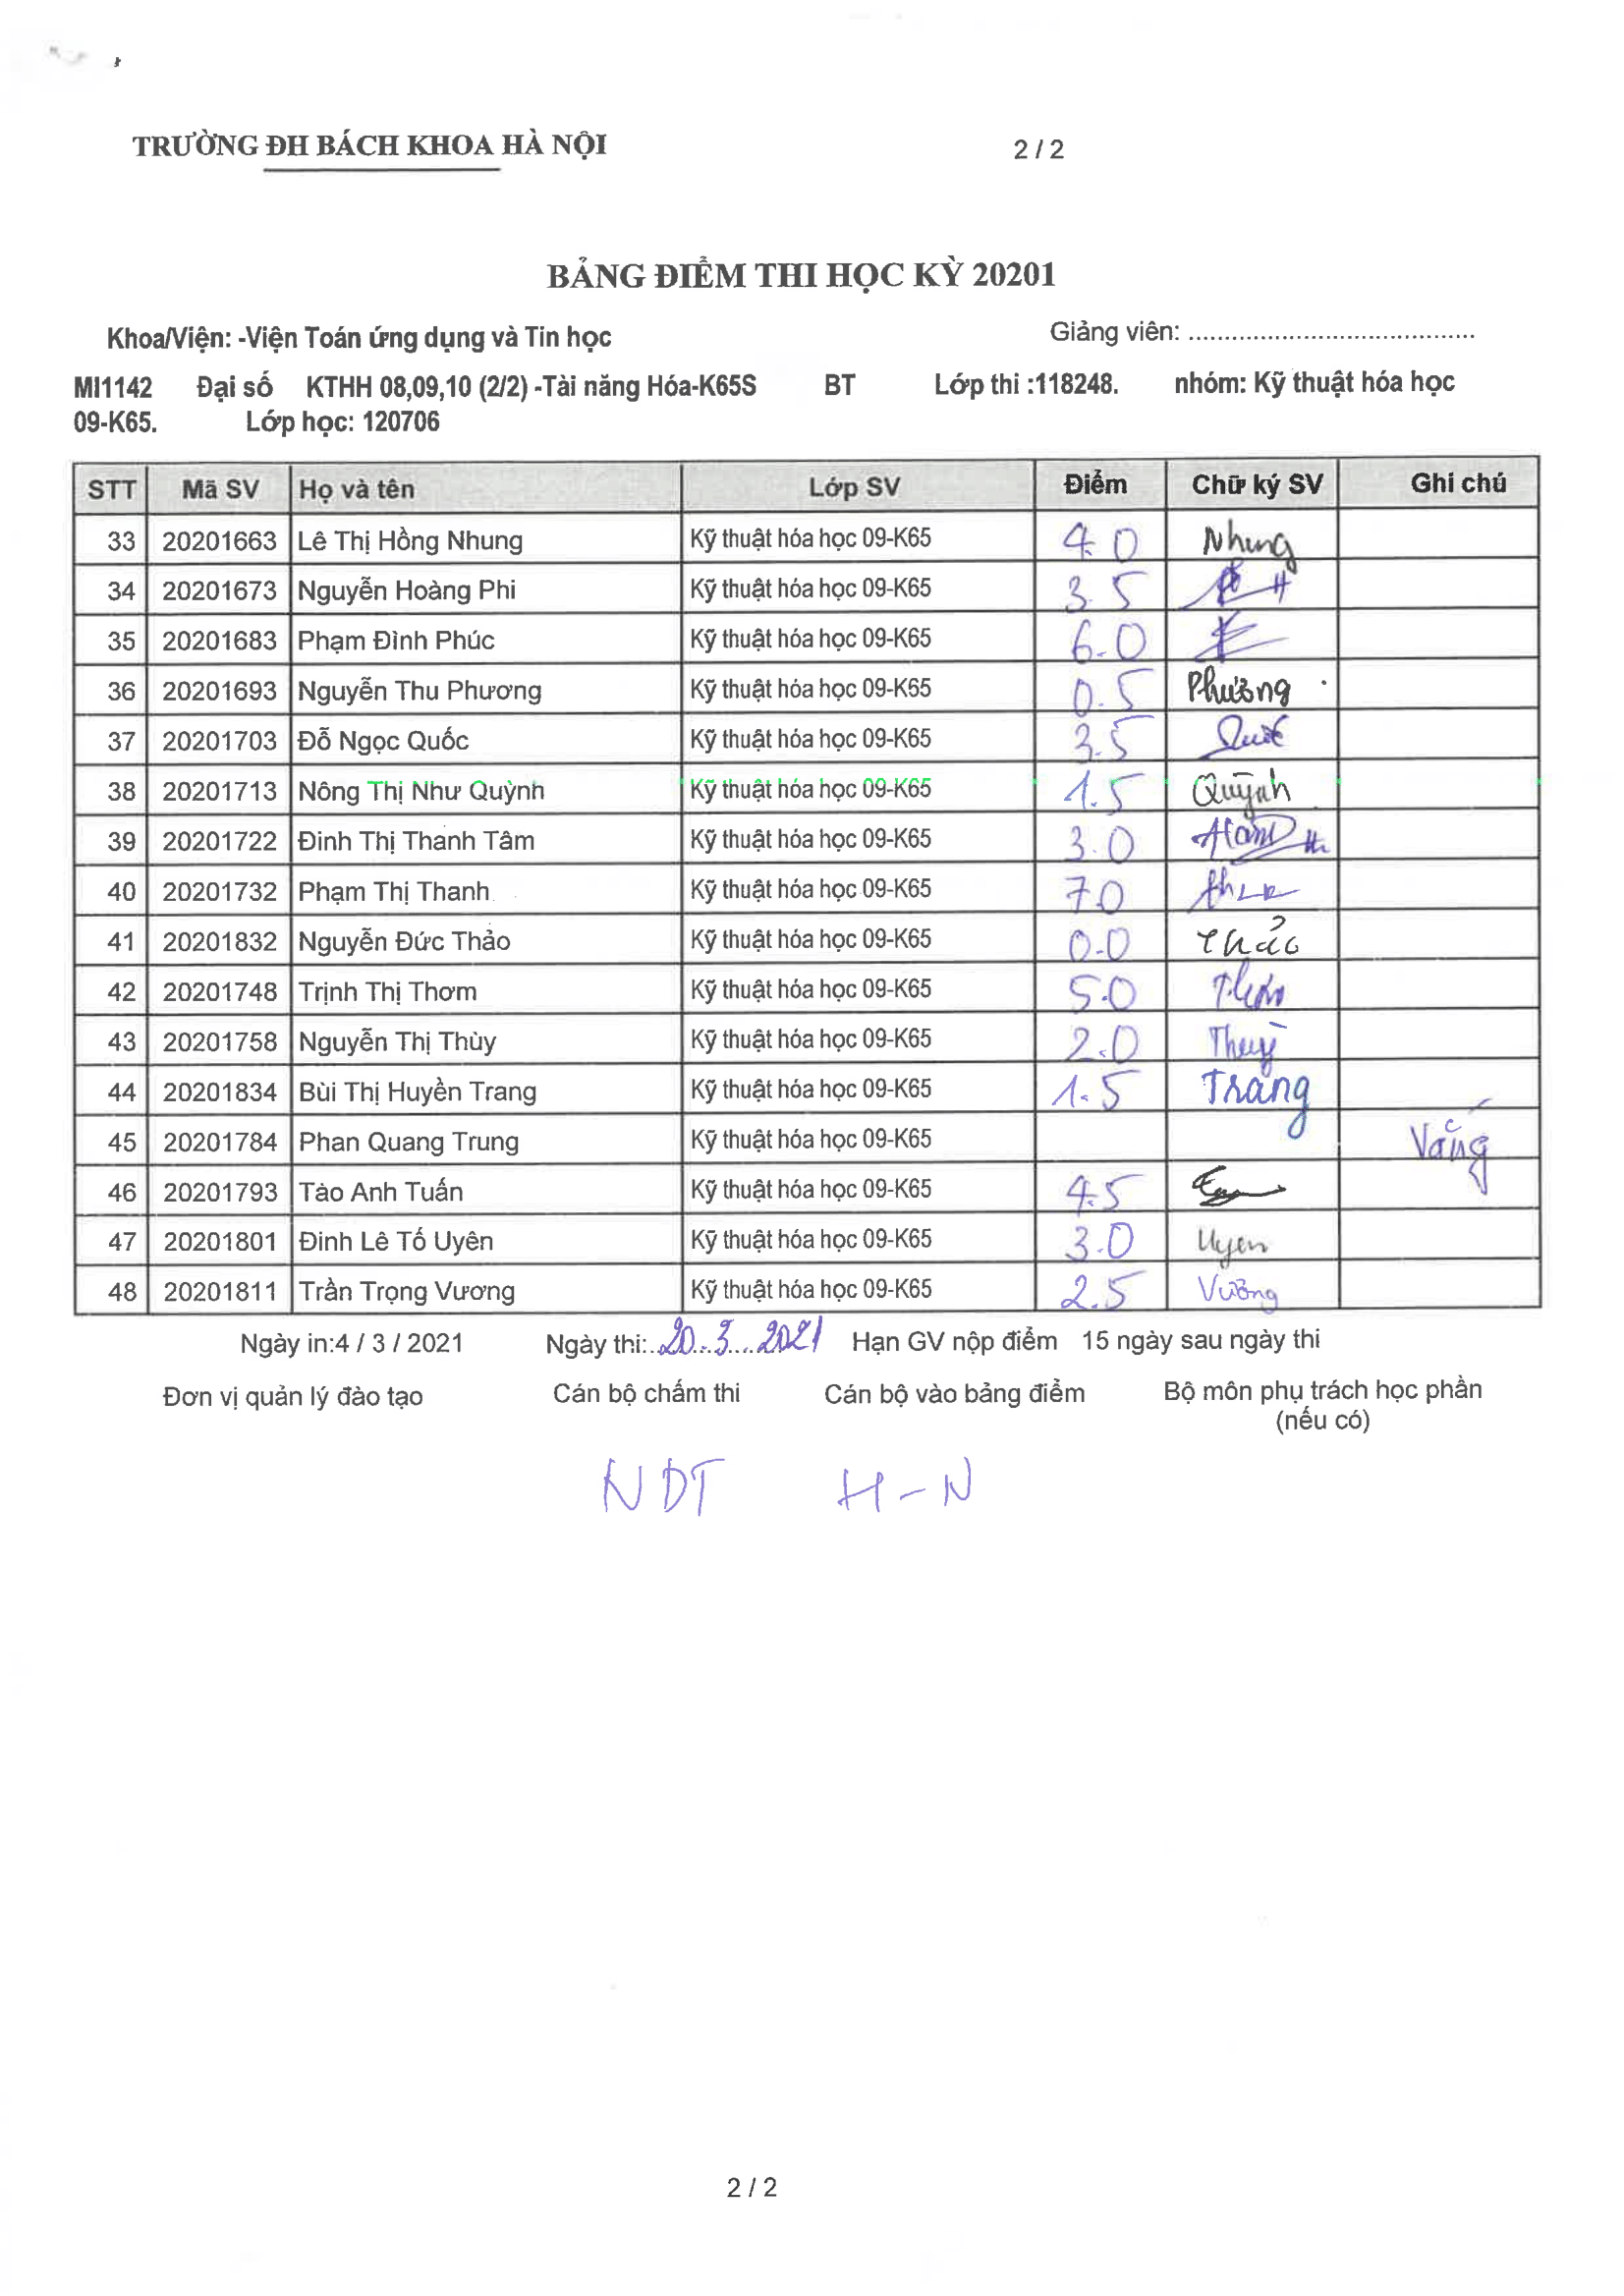 TRƯỜNG ĐH BÁCH KHOA HÀ NỘI 2 / 2
BẢNG ĐIỂM THI HỌC KỲ 20201
Khoa/Viện: -Viện Toán ứng dụng và Tin học Giảng viên: ........................................
MI1142 Đại số KTHH 08,09,10 (2/2) -Tài năng Hóa-K65S BT Lớp thi :118248. nhóm: Kỹ thuật hóa học
09-K65. Lớp học: 120706
STT Mã SV Họ và tên Lớp SV Điểm Chữ ký SV Ghi chú
33 20201663 Lê Thị Hồng Nhung Kỹ thuật hóa học 09-K65 4.0 Nhung
34 20201673 Nguyễn Hoàng Phi Kỹ thuật hóa học 09-K65 3.5
35 20201683 Phạm Đình Phúc Kỹ thuật hóa học 09-K65 6.0
36 20201693 Nguyễn Thu Phương Kỹ thuật hóa học 09-K65 0.5 Phương
37 20201703 Đỗ Ngọc Quốc Kỹ thuật hóa học 09-K65 3.5
38 20201713 Nông Thị Như Quỳnh Kỹ thuật hóa học 09-K65 1.5 Quỳnh
39 20201722 Đinh Thị Thanh Tâm Kỹ thuật hóa học 09-K65 3.0
40 20201732 Phạm Thị Thanh Kỹ thuật hóa học 09-K65 7.0
41 20201832 Nguyễn Đức Thảo Kỹ thuật hóa học 09-K65 0.0 Thảo
42 20201748 Trịnh Thị Thơm Kỹ thuật hóa học 09-K65 5.0 Thơm
43 20201758 Nguyễn Thị Thùy Kỹ thuật hóa học 09-K65 2.0 Thuỳ
44 20201834 Bùi Thị Huyền Trang Kỹ thuật hóa học 09-K65 1.5 Trang
45 20201784 Phan Quang Trung Kỹ thuật hóa học 09-K65 Vắng
46 20201793 Tào Anh Tuấn Kỹ thuật hóa học 09-K65 4.5
47 20201801 Đinh Lê Tố Uyên Kỹ thuật hóa học 09-K65 3.0 Uyen
48 20201811 Trần Trọng Vương Kỹ thuật hóa học 09-K65 2.5 Vương
Ngày in:4 / 3 / 2021 Ngày thi: 20.3.2021 Hạn GV nộp điểm 15 ngày sau ngày thi
Đơn vị quản lý đào tạo Cán bộ chấm thi Cán bộ vào bảng điểm Bộ môn phụ trách học phần
(nếu có)
NDT H-N
2 / 2